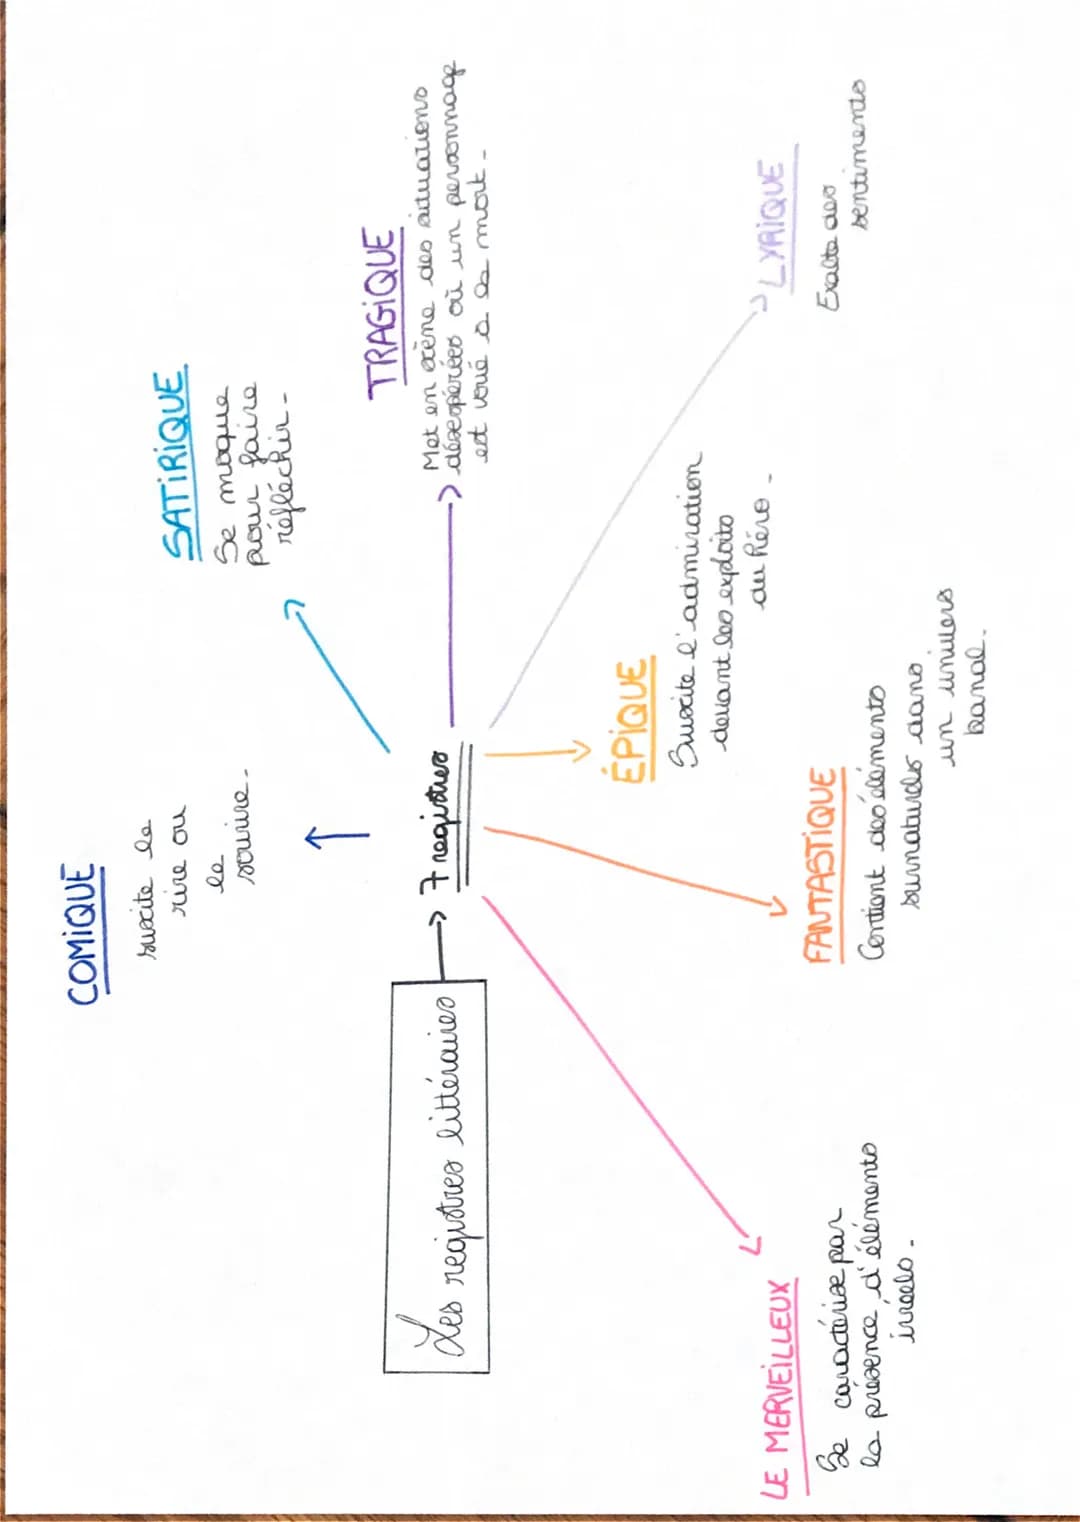 COMIQUE
suscite le
rire ou
le
sourire.
SATIRIQUE
Se moque
pour faire
réfléchir.
TRAGIQUE
Met en scène des situations
désespérées où un personnage
est voué à la mort.
Les registres littéraires
→ 7 registres
LYRIQUE
Exalte des
sentiments
ÉPIQUE
Suscite l'admiration
devant les exploits
du héro.
FANTASTIQUE
Contient des éléments
surnaturels dans
un univers
banal.
LE MERVEILLEUX
Se caractérise par
la présence d'éléments
irréels.